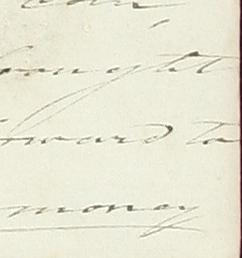 brought
forward to
money